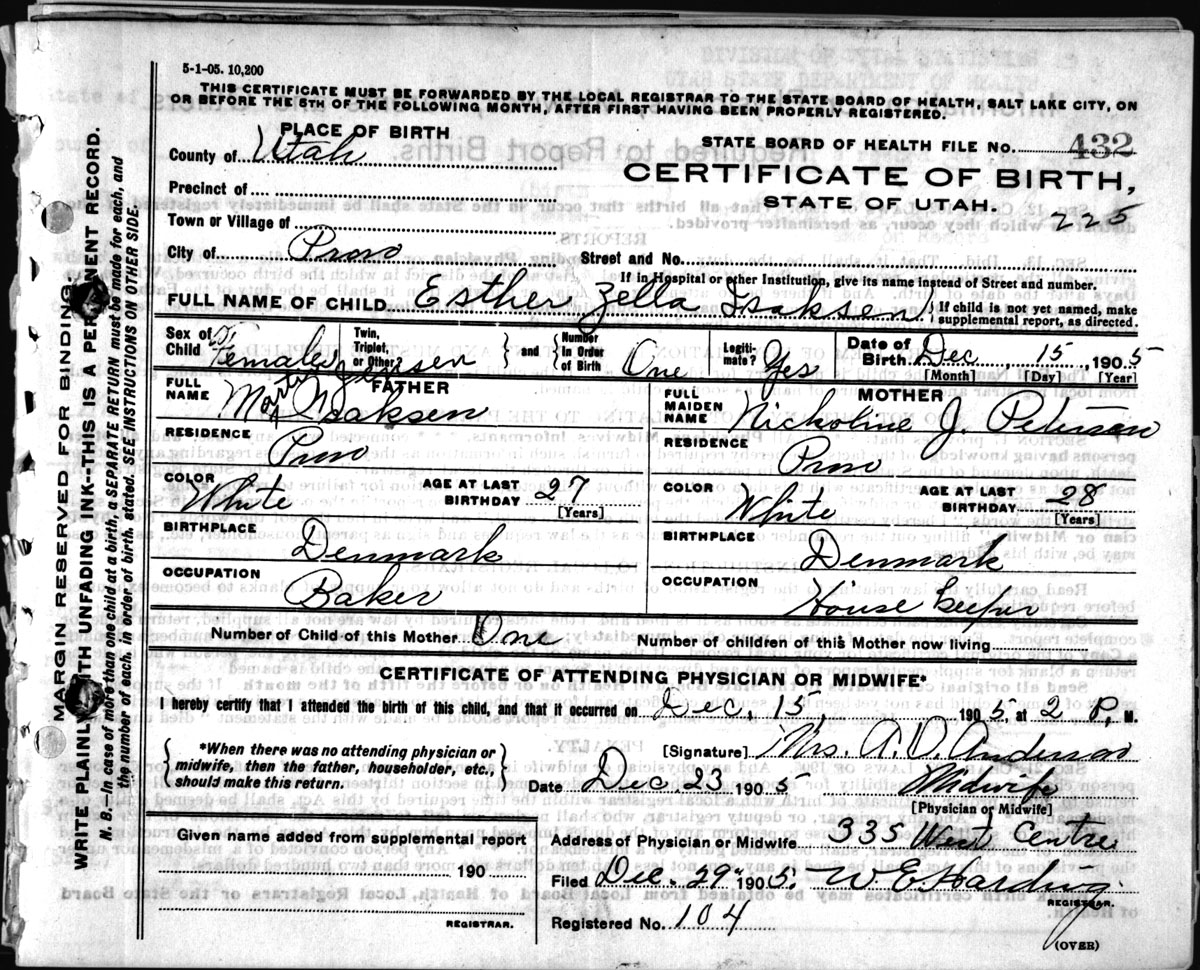 5-1-05. 10,200
THIS CERTIFICATE MUST BE FORWARDED BY THE LOCAL REGISTRAR TO THE STATE BOARD OF HEALTH, SALT LAKE CITY, ON
OR BEFORE THE 5TH OF THE FOLLOWING MONTH, AFTER FIRST HAVING BEEN PROPERLY REGISTERED.
PLACE OF BIRTH
STATE BOARD OF HEALTH FILE NO. 432
County of Utah
CERTIFICATE OF BIRTH,
Precinct of
STATE OF UTAH.
225
Town or Village of
City of Provo Street and No.
If in Hospital or other Institution, give its name instead of Street and number.
FULL NAME OF CHILD Esther Zella Isaksen
If child is not yet named, make supplemental report, as directed.
Sex of Child Female Twin, Triplet, or Other? and Number In Order of Birth One Legitimate? Yes Date of Birth Dec 15 1905
[Month] [Day] [Year]
FULL NAME FATHER
Jensen
Isaksen
FULL MAIDEN NAME MOTHER
Nickoline J. Peterson
RESIDENCE Provo
RESIDENCE Provo
COLOR White AGE AT LAST BIRTHDAY 27 [Years]
COLOR White AGE AT LAST BIRTHDAY 28 [Years]
BIRTHPLACE Denmark
BIRTHPLACE Denmark
OCCUPATION Baker
OCCUPATION House Keeper
Number of Child of this Mother One Number of children of this Mother now living
CERTIFICATE OF ATTENDING PHYSICIAN OR MIDWIFE*
I hereby certify that I attended the birth of this child, and that it occurred Dec. 15, 1905, at 2 P. M.
*When there was no attending physician or midwife, then the father, householder, etc., should make this return.
[Signature] Mrs. A. D. Anderson
Date Dec 23 1905 Midwife
[Physician or Midwife]
Given name added from supplemental report
190
REGISTRAR.
Address of Physician or Midwife 335 West Centre
Filed Dec. 29" 1905. W E Harding
REGISTRAR.
Registered No. 104
(OVER)
MARGIN RESERVED FOR BINDING.
WRITE PLAINLY WITH UNFADING INK--THIS IS A PERMANENT RECORD.
N. B.--In case of more than one child at a birth, a SEPARATE RETURN must be made for each, and
the number of each, in order of birth, stated. SEE INSTRUCTIONS ON OTHER SIDE.